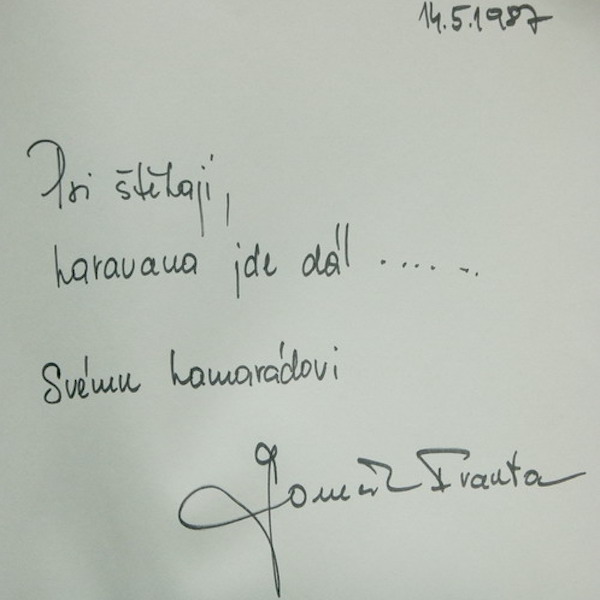 14.5.1987
Psi štěkají,
karavana jde dál .......
Svému kamarádovi
Tomáš Franta